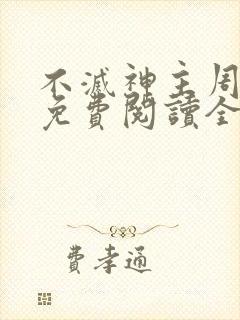 不滅神主周
免費閱讀全
費孝通